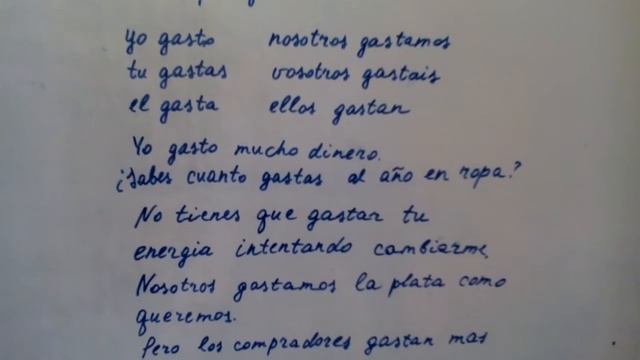 yo gasto nosotros gastamos
tu gastas vosotros gastais
el gasta ellos gastan
Yo gasto mucho dinero.
¿Sabes cuanto gastas al año en ropa?
No tienes que gastar tu
energia intentando cambiarme.
Nosotros gastamos la plata como
queremos.
Pero los compradores gastan mas